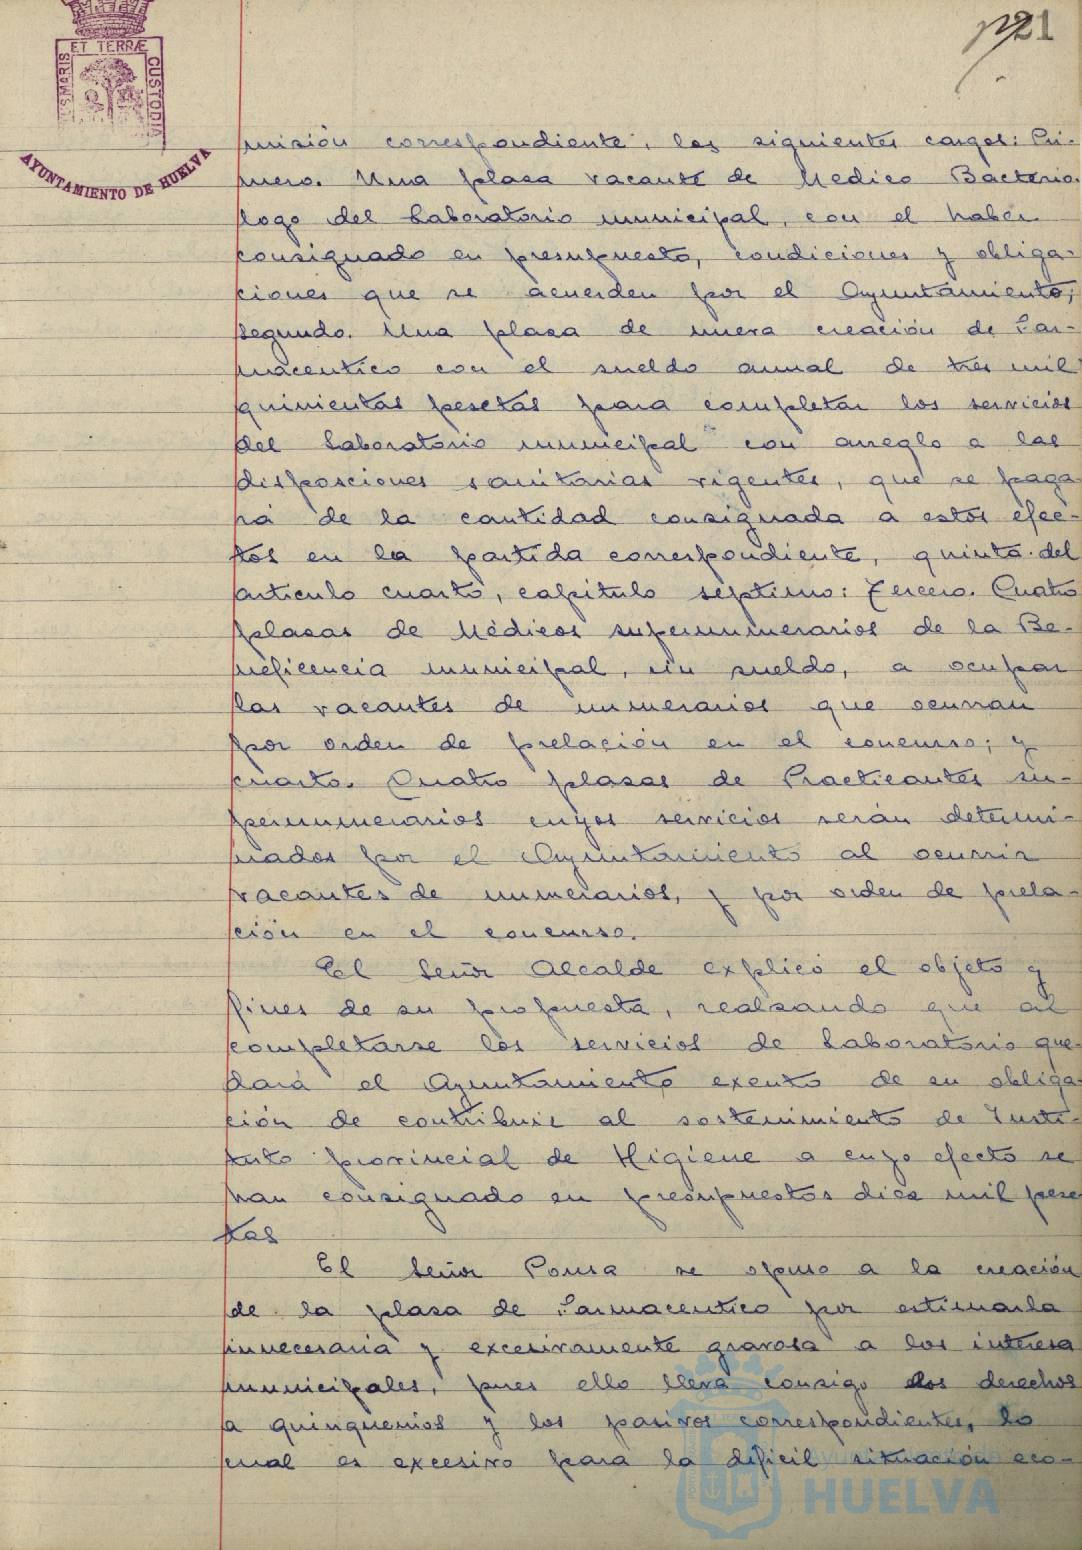 21
ET TERRÆ
S MARIS
CUSTODIA
AYUNTAMIENTO DE HUELVA
misión correspondiente, los siguientes cargos: Pri-
mero. Una plaza vacante de Medico Bacterio-
logo del Laboratorio municipal, con el haber
consignado en presupuesto, condiciones y obliga-
ciones que se acuerden por el Ayuntamiento;
segundo. Una plaza de nueva creación de Far-
maceutico con el sueldo annal de tres mil
quinientas pesetas para completar los servicios
del Laboratorio municipal con arreglo a las
disposciones sanitarias vigentes, que se paga-
rá de la cantidad consignada a estos efec-
tos en la partida correspondiente, quinta del
articulo cuarto, capitulo séptimo: Tercero. Cuatro
plazas de Médicos supernumerarios de la Be-
neficencia municipal, sin sueldo, a ocupar
las vacantes de numerarios que ocurran
por orden de prelación en el concurso; y
cuarto. Cuatro plazas de Practicantes su-
pernumerarios cuyos servicios serán determi-
nados por el Ayuntamiento al ocurrir
vacantes de numerarios, y por orden de prela-
ción en el concurso.
El Señor Alcalde explicó el objeto y
fines de su propuesta, realzando que al
completarse los servicios de Laboratorio que-
dará el Ayuntamiento exento de su obliga-
ción de contribuir al sostenimiento de Insti-
tuto provincial de Higiene a cuyo efecto se
han consignado en presupuestos diez mil pese-
tas
El Señor Ponsa se opuso a la creación
de la plaza de Farmaceutico por estimarla
innecesaria y excesivamente gravosa a los interesa
municipales, pues ello lleva consigo los derechos
a quinquenios y los pasivos correspondientes, lo
cual es excesivo para la dificil situación eco-
Ayuntamiento de
HUELVA